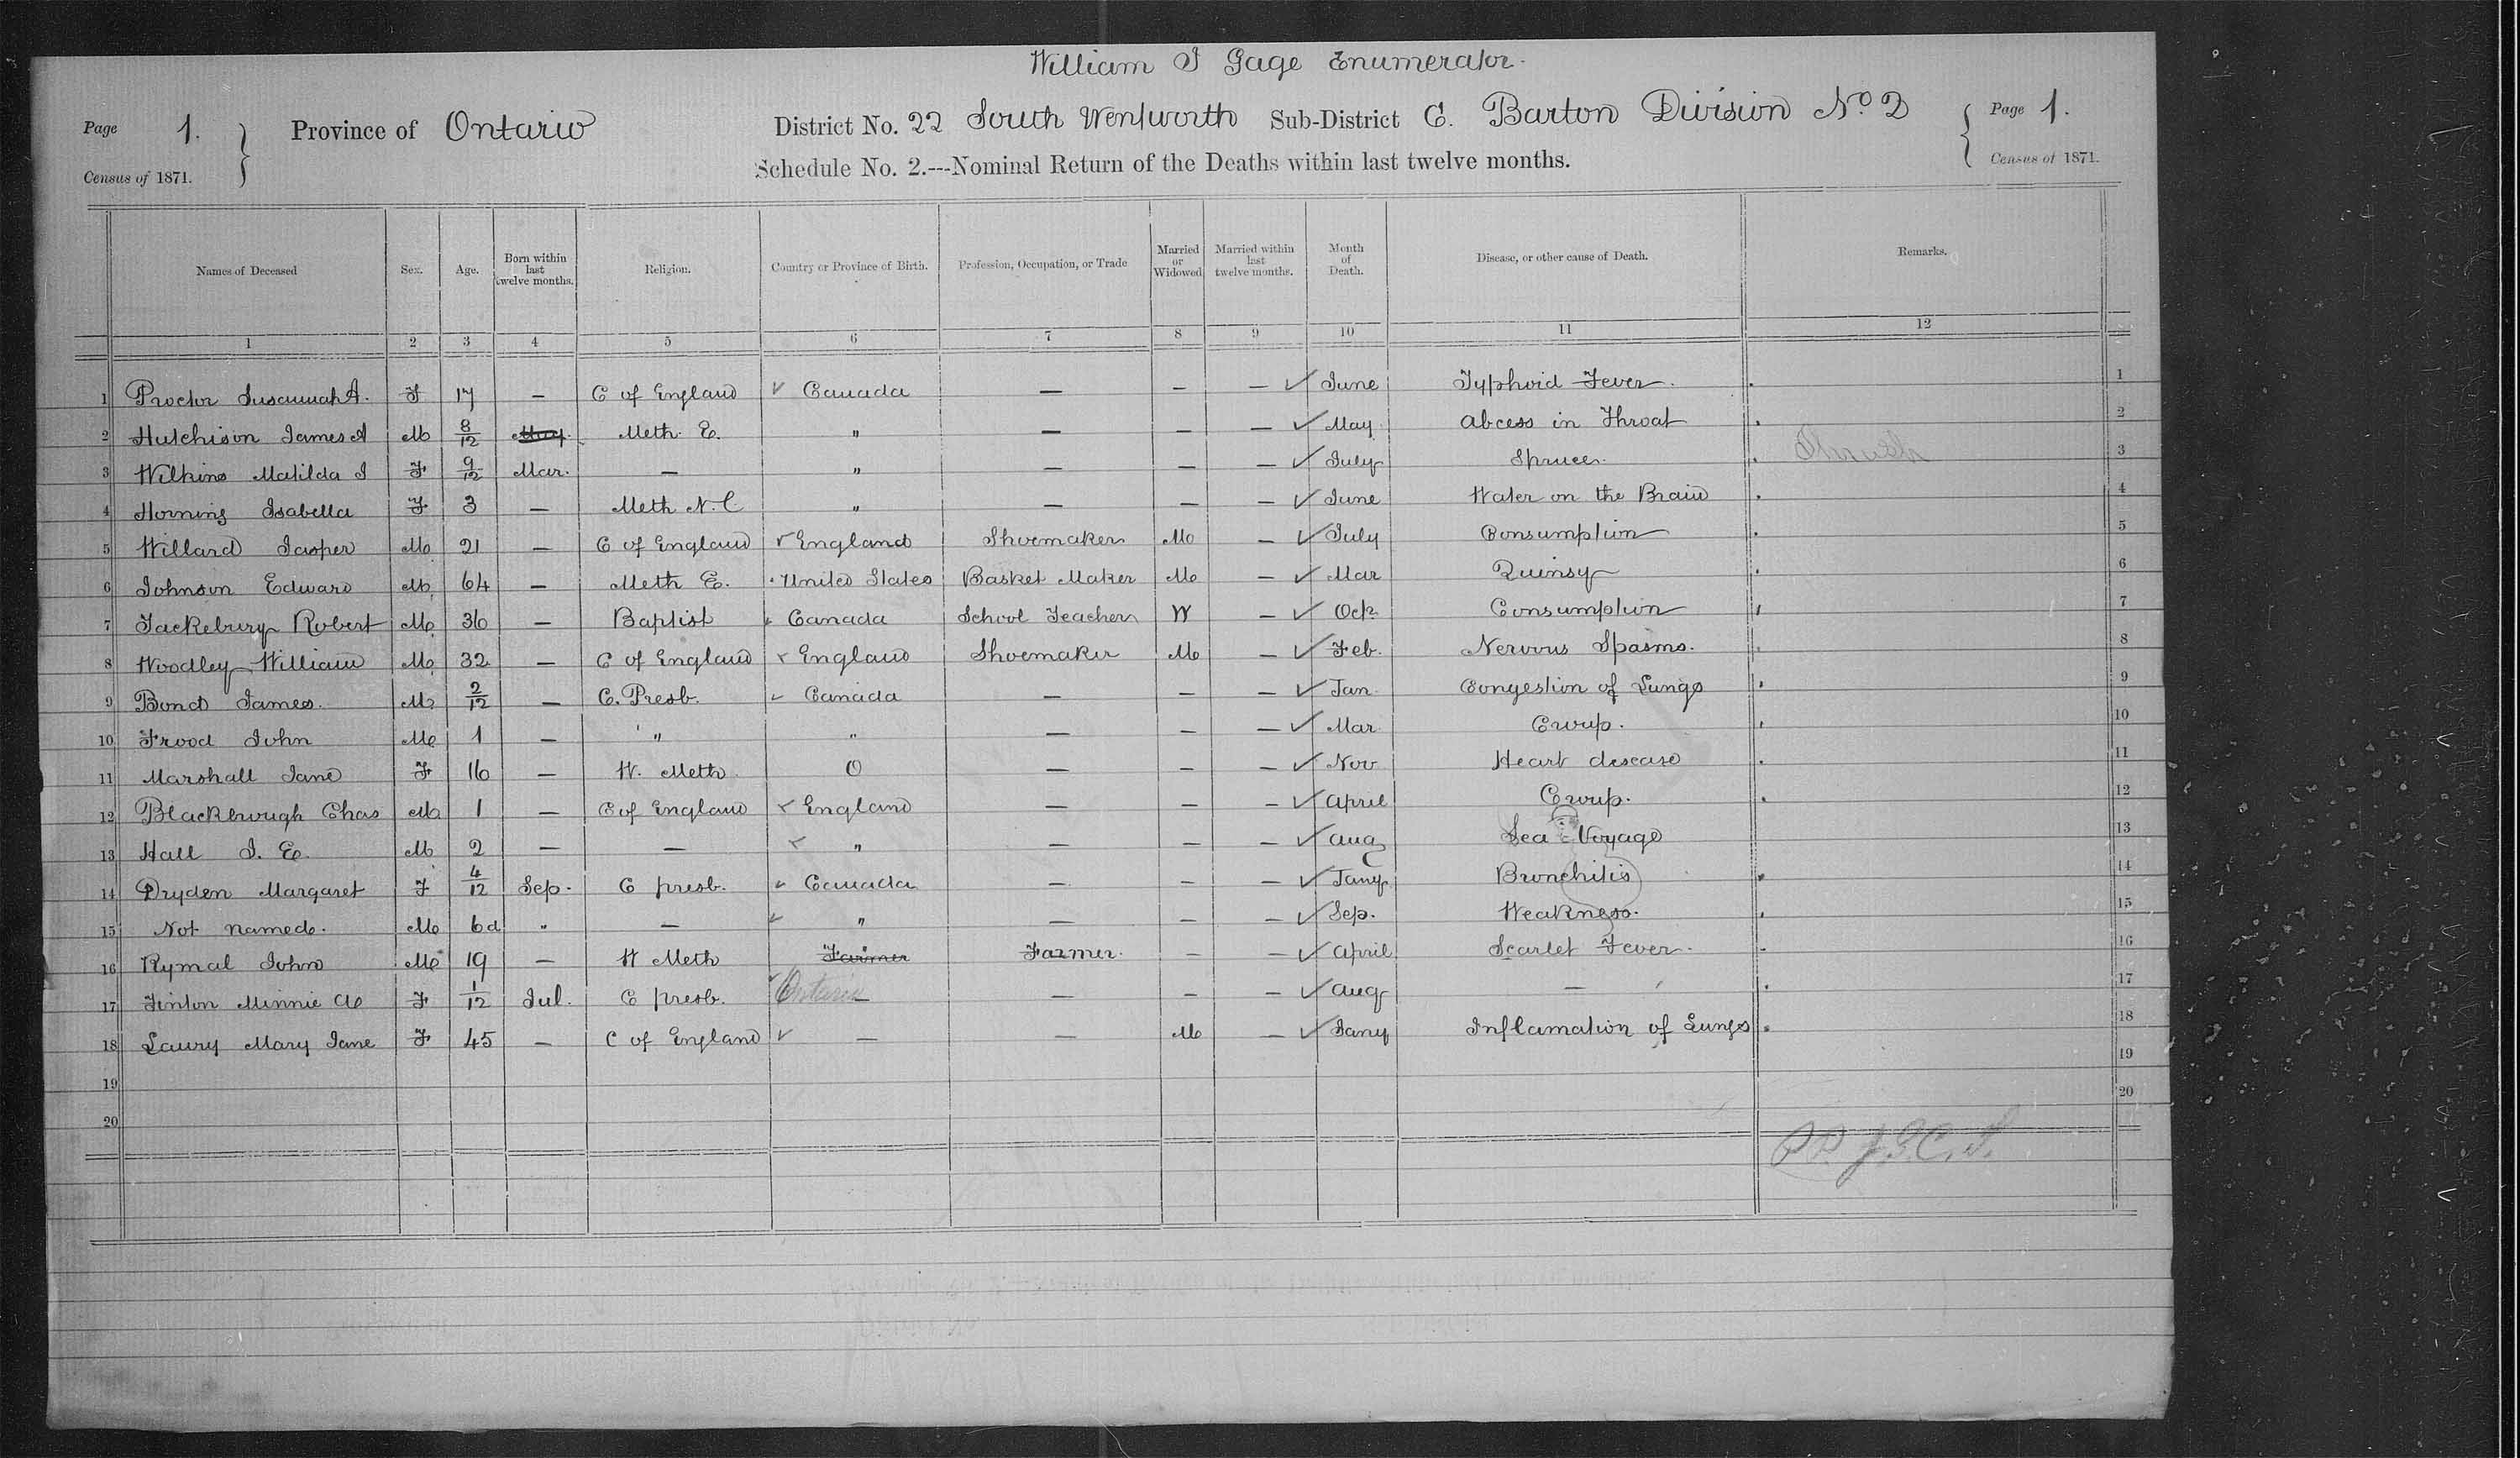 William I Gage Enumerator.
Page 1. Province of Ontario District No. 22 South Wentworth Sub-District C. Barton Division No 2 Page 1.
Census of 1871. Schedule No. 2.---Nominal Return of the Deaths within last twelve months. Census of 1871.
Names of Deceased Sex. Age. Born within last twelve months. Religion. Country or Province of Birth. Profession, Occupation, or Trade Married or Widowed Married within last twelve months. Month of Death. Disease, or other cause of Death. Remarks.
1 2 3 4 5 6 7 8 9 10 11 12
1 Proctor Susannah A. F 17 — C of England ✓ Canada — — — ✓ June Typhoid Fever. 1
2 Hutchison James A M 8/12 Meth. E. " — — — ✓ May Abcess in Throat 2
3 Wilkins Matilda I F 9/12 Mar. — " — — — ✓ July Sprue 3
4 Horning Isabella F 3 — Meth N. C " — — — ✓ June Water on the Brain 4
5 Willard Jasper M 21 — C of England ✓ England Shoemaker M — ✓ July Consumption 5
6 Johnson Edward M 64 — Meth E. United States Basket Maker M — ✓ Mar Quinsy 6
7 Tackebury Robert M 36 — Baptist ✓ Canada School Teacher W — ✓ Oct. Consumption 7
8 Woodley William M 32 — C of England ✓ England Shoemaker M — ✓ Feb. Nervous Spasms. 8
9 Bond James. M 2/12 — C. Presb. ✓ Canada — — — ✓ Jan. Congestion of Lungs 9
10 Frood John M 1 — " " — — — ✓ Mar. Croup. 10
11 Marshall Jane F 16 — W. Meth. O — — — ✓ Nov Heart disease 11
12 Blackbrough Chas M 1 — C of England ✓ England — — — ✓ April Croup. 12
13 Hall J. E. M 2 — — ✓ " — — — ✓ Aug Sea Voyage 13
14 Dryden Margaret F 4/12 Sep. C presb. ✓ Canada — — — ✓ Jany Bronchitis 14
15 Not named. M 6d " — ✓ " — — — ✓ Sep. Weakness. 15
16 Rymal John M 19 — W Meth Farmer Farmer. — — ✓ April Scarlet Fever. 16
17 Finton Minnie F 1/12 Jul. C presb. ✓ Ontario — — — ✓ Aug — 17
18 Laury Mary Jane F 45 — C of England ✓ — — M — ✓ Jany Inflamation of Lungs 18
19 19
20 20